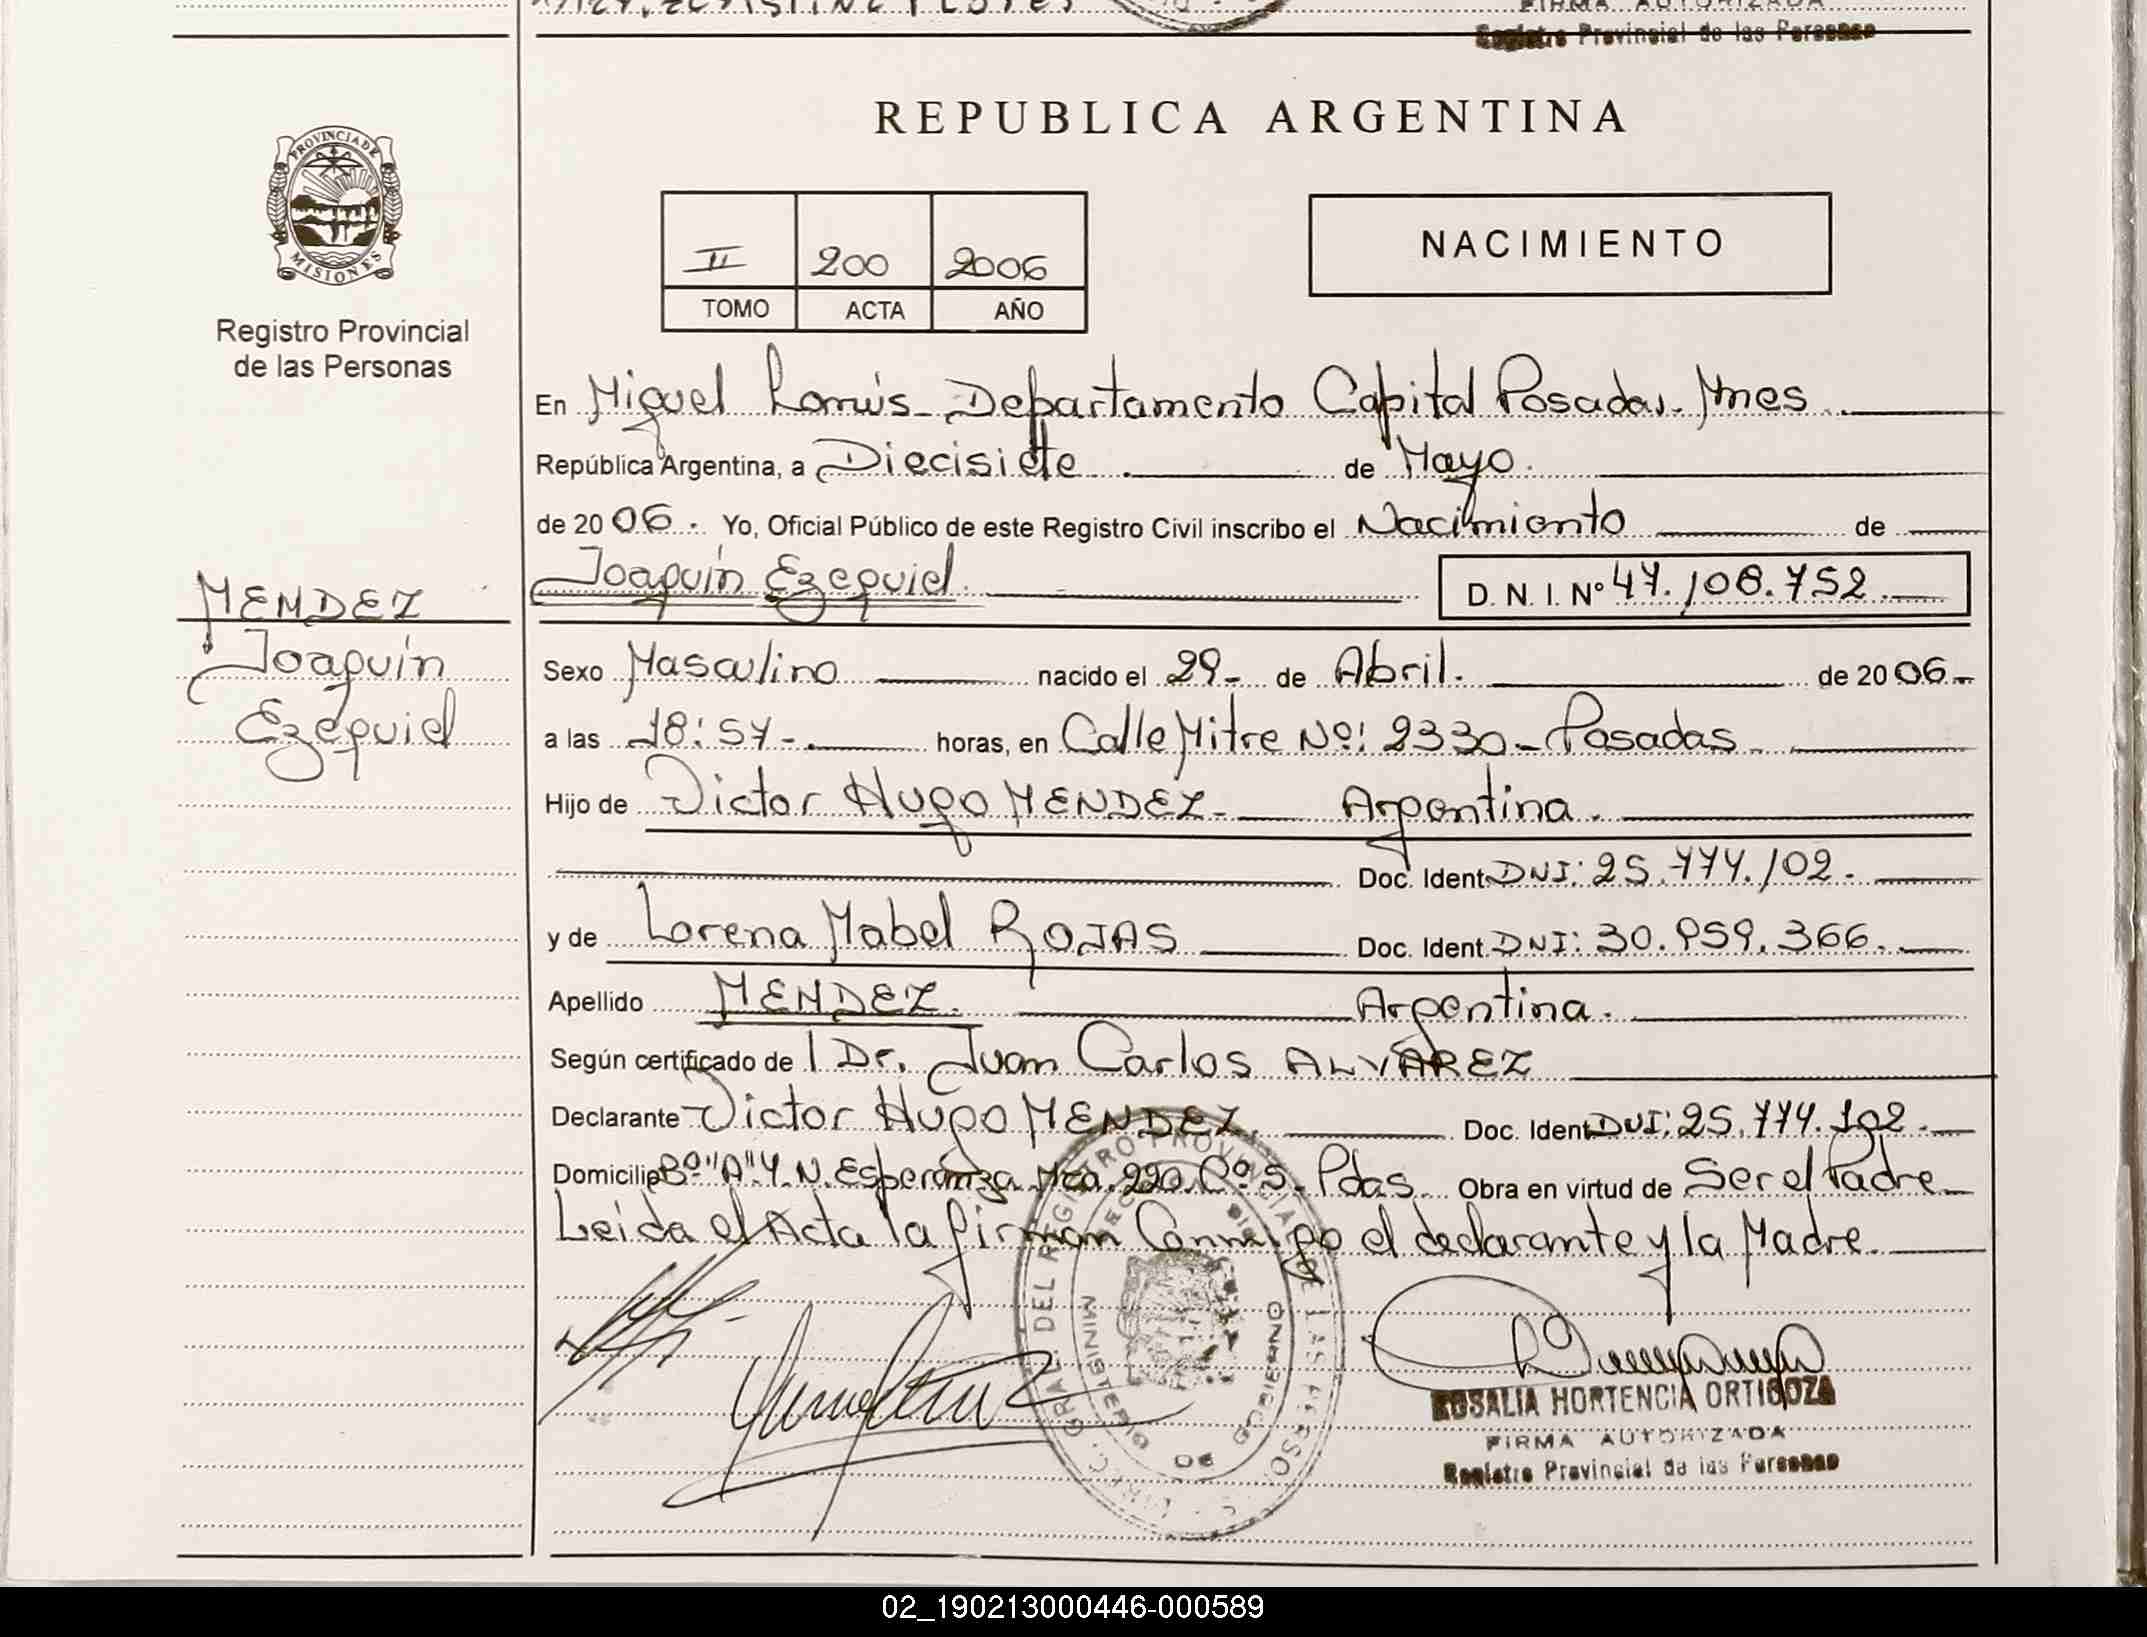 REPUBLICA ARGENTINA
PROVINCIA DE
MISIONES
Registro Provincial
de las Personas
II 200 2006
TOMO ACTA AÑO
NACIMIENTO
En Miguel Lanús - Departamento Capital Posadas - Mnes
República Argentina, a Diecisiete de Mayo.
de 2006. Yo, Oficial Público de este Registro Civil inscribo el Nacimiento de
Joaquín Ezequiel. D. N. I. Nº 47.108.752
MENDEZ
Joaquín
Ezequiel
Sexo Masculino nacido el 29 - de Abril. de 2006 -
a las 18:57 - horas, en Calle Mitre Nº: 2330 - Posadas
Hijo de Victor Hugo MENDEZ - Argentina.
Doc. Ident. DNI: 25.774.102.
y de Lorena Mabel ROJAS Doc. Ident. DNI: 30.959.366.
Apellido MENDEZ. Argentina.
Según certificado de l Dr. Juan Carlos ALVAREZ
Declarante Victor Hugo MENDEZ. Doc. Ident. DNI: 25.774.102.
Domicilio Bº "A" 4. N. Esperanza Mza. 220. Cº 5. Pdas. Obra en virtud de Ser el Padre
Leida el Acta la firman Conmigo el declarante y la Madre.
MINISTERIO DE GOBIERNO
ROSALIA HORTENCIA ORTIGOZA
FIRMA AUTORIZADA
Registro Provincial de las Personas
02_190213000446-000589